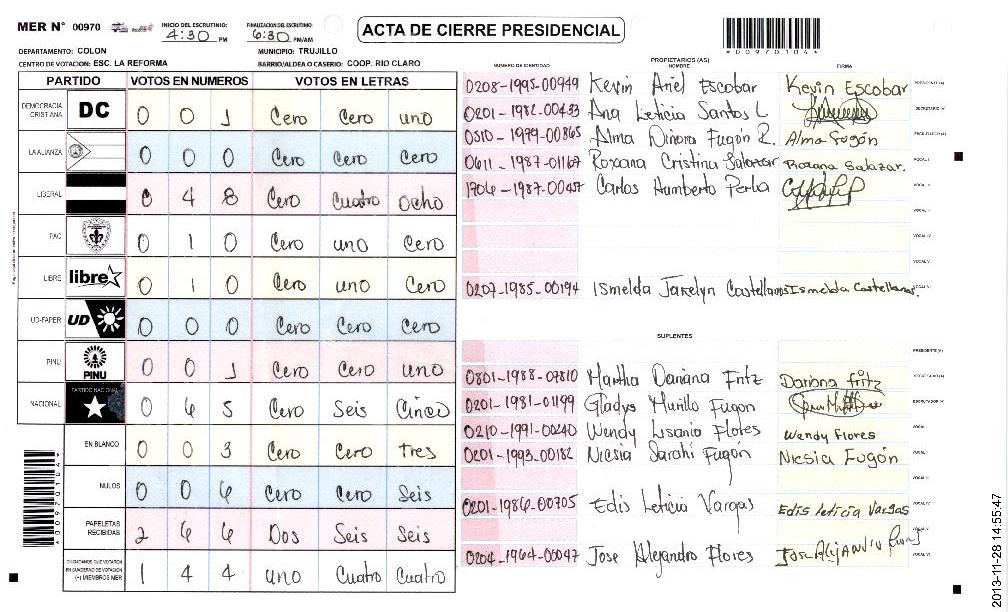 MER N° 00970
INICIO DEL ESCRUTINIO: 4:30 PM
FINALIZACION DEL ESCRUTINIO: 6:30 PM/AM
ACTA DE CIERRE PRESIDENCIAL
*00970104*
DEPARTAMENTO: COLON
MUNICIPIO: TRUJILLO
CENTRO DE VOTACION: ESC. LA REFORMA
BARRIO/ALDEA O CASERIO: COOP. RIO CLARO
PARTIDO VOTOS EN NUMEROS VOTOS EN LETRAS
DEMOCRACIA CRISTIANA DC 0 0 1 Cero Cero uno
LA ALIANZA 0 0 0 Cero Cero Cero
LIBERAL 0 4 8 Cero Cuatro Ocho
PAC 0 1 0 Cero uno Cero
LIBRE libre 0 1 0 Cero uno Cero
UD-FAPER UD 0 0 0 Cero Cero Cero
PINU PINU 0 0 1 Cero Cero uno
NACIONAL PARTIDO NACIONAL 0 6 5 Cero Seis Cinco
EN BLANCO 0 0 3 Cero Cero tres
NULOS 0 0 6 Cero Cero Seis
PAPELETAS RECIBIDAS 2 6 6 Dos Seis Seis
CIUDADANOS QUE VOTARON EN CUADERNO DE VOTACION (+) MIEMBROS MER 1 4 4 uno Cuatro Cuatro
*00970104*
PROPIETARIOS (AS)
NUMERO DE IDENTIDAD NOMBRE FIRMA
0208-1995-00949 Kevin Ariel Escobar Kevin Escobar PRESIDENTE (A)
0201-1982-00433 Ana Leticia Santos L SECRETARIO (A)
0310-1979-00865 Alma Dinora Fugón R. Alma Fugón ESCRUTADOR (A)
0611-1987-01167 Roxana Cristina Salazar Roxana Salazar. VOCAL I
1706-1987-00457 Carlos Humberto Perla VOCAL II
VOCAL III
VOCAL IV
VOCAL V
0207-1985-00194 Ismelda Jakelyn Castellanos Ismelda Castellanos. VOCAL VI
SUPLENTES
PRESIDENTE (A)
0801-1988-07810 Martha Dariana Fritz Dariana fritz SECRETARIO (A)
0201-1981-01199 Gladys Murillo Fugon ESCRUTADOR (A)
0210-1991-00240 Wendy Lisania Flores Wendy Flores VOCAL I
0201-1993-00182 Nicsia Sarahi Fugón Nicsia Fugón VOCAL II
VOCAL III
0201-1986-00705 Edis Leticia Vargas Edis leticia Vargas VOCAL IV
VOCAL V
0204-1964-00047 Jose Alejandro Flores VOCAL VI
2013-11-28 14:55:47